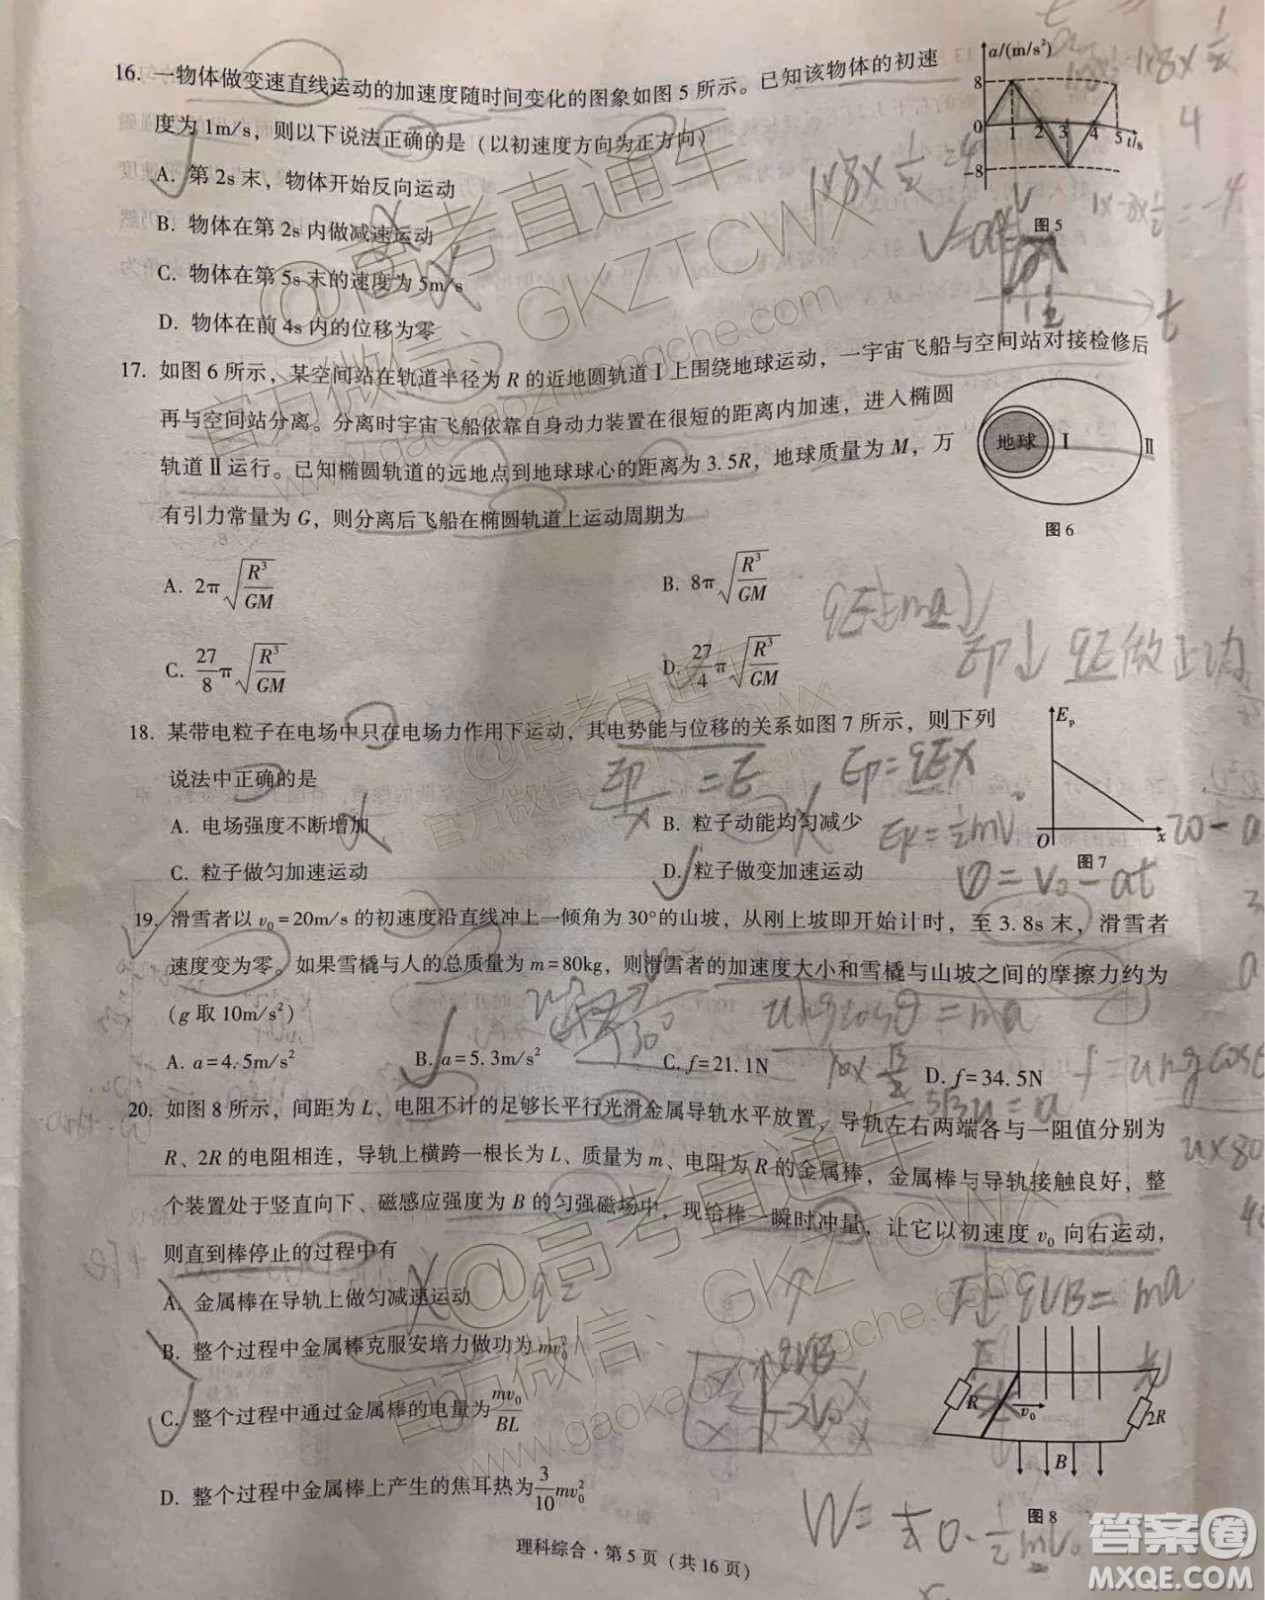 16. 一物体做变速直线运动的加速度随时间变化的图象如图 5 所示。已知该物体的初速
度为 1m/s，则以下说法正确的是（以初速度方向为正方向）
A. 第 2s 末，物体开始反向运动
B. 物体在第 2s 内做减速运动
C. 物体在第 5s 末的速度为 5m/s
D. 物体在前 4s 内的位移为零
a/(m/s²)
8
0 1 2 3 4 5 t/s
-8
图 5
1×8×½=4
17. 如图 6 所示，某空间站在轨道半径为 R 的近地圆轨道 Ⅰ 上围绕地球运动，一宇宙飞船与空间站对接检修后
再与空间站分离。分离时宇宙飞船依靠自身动力装置在很短的距离内加速，进入椭圆
轨道 Ⅱ 运行。已知椭圆轨道的远地点到地球球心的距离为 3.5R，地球质量为 M，万
有引力常量为 G，则分离后飞船在椭圆轨道上运动周期为
地球 Ⅰ Ⅱ
图 6
A. 2π√(R³/GM)
B. 8π√(R³/GM)
C. 27/8 π√(R³/GM)
D. 27/4 π√(R³/GM)
Ep↓ qE做正功
18. 某带电粒子在电场中只在电场力作用下运动，其电势能与位移的关系如图 7 所示，则下列
说法中正确的是
A. 电场强度不断增加
B. 粒子动能均匀减少
C. 粒子做匀加速运动
D. 粒子做变加速运动
Ep
O x
图 7
Ep/x = E
Ep=qEx
v=v₀-at
19. 滑雪者以 v₀=20m/s 的初速度沿直线冲上一倾角为 30°的山坡，从刚上坡即开始计时，至 3.8s 末，滑雪者
速度变为零。如果雪橇与人的总质量为 m=80kg，则滑雪者的加速度大小和雪橇与山坡之间的摩擦力约为
（g 取 10m/s²）
A. a=4.5m/s²
B. a=5.3m/s²
C. f=21.1N
D. f=34.5N
20. 如图 8 所示，间距为 L、电阻不计的足够长平行光滑金属导轨水平放置，导轨左右两端各与一阻值分别为
R、2R 的电阻相连，导轨上横跨一根长为 L、质量为 m、电阻为 R 的金属棒，金属棒与导轨接触良好，整
个装置处于竖直向下、磁感应强度为 B 的匀强磁场中，现给棒一瞬时冲量，让它以初速度 v₀ 向右运动，
则直到棒停止的过程中有
A. 金属棒在导轨上做匀减速运动
B. 整个过程中金属棒克服安培力做功为 mv₀²
C. 整个过程中通过金属棒的电量为 mv₀/BL
D. 整个过程中金属棒上产生的焦耳热为 3/10 mv₀²
R v₀ 2R
B
图 8
理科综合·第 5 页（共 16 页）
@高考直通车
官方微信：GKZTCWX
www.gaokaozhitongche.com
@高考直通车
官方微信：GKZTCWX
www.gaokaozhitongche.com
答案圈
MXQE.COM